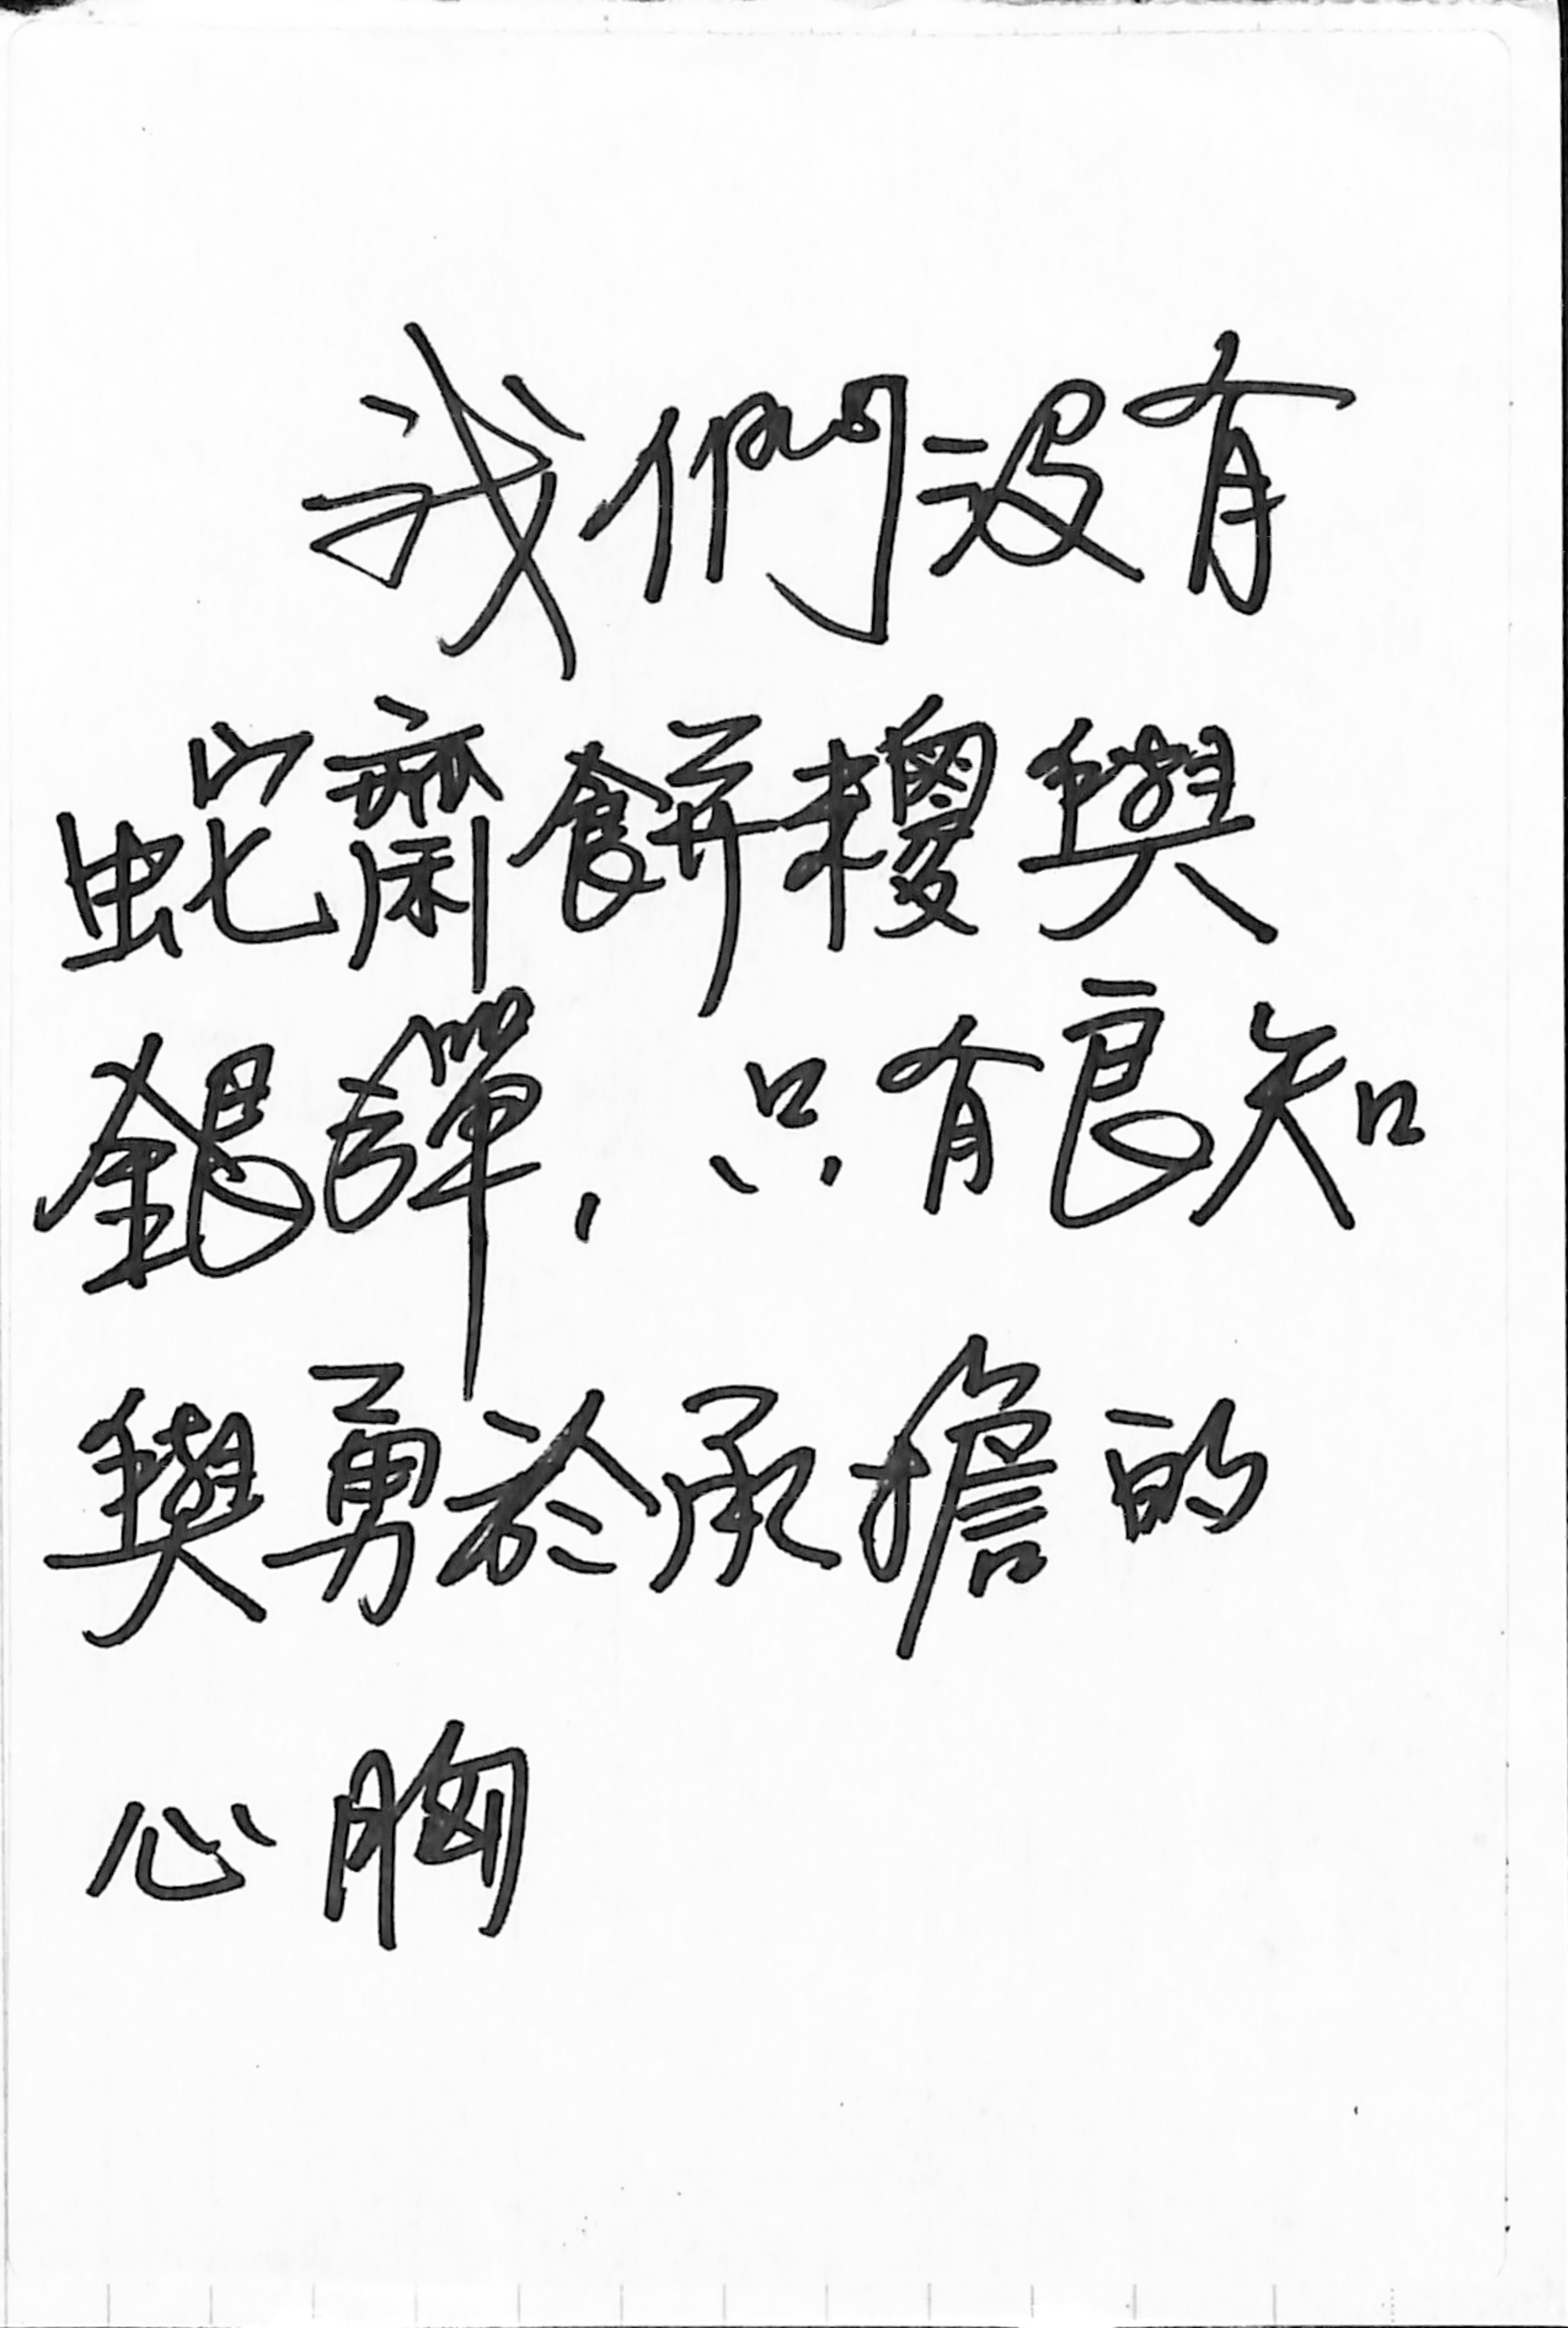 我們沒有
蛇齋餅糭與
銀彈，只有良知
與勇於承擔的
心胸